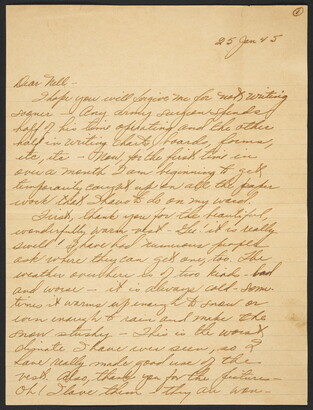 ①
25 Jan 45
Dear Nell -
I hope you will forgive me for not writing
sooner - Any army surgeon spends
half of his time operating and the other
half in writing charts, boards, forms,
etc, etc - Now, for the first time in
over a month I am beginning to get
temporarily caught up on all the paper
work that I have to do on my ward.
First, thank you for the beautiful,
wonderfully warm vest - Gee! it is really
swell! I have had numerous people
ask where they can get one, too. The
weather over here is of two kinds - bad
and worse - it is always cold - some-
times it warms up enough to snow or
even enough to rain and make the
snow slushy - This is the worst
climate I have ever seen, so I
have really made good use of the
vest. Also, thank you for the pictures -
Oh! I love them - they are won-